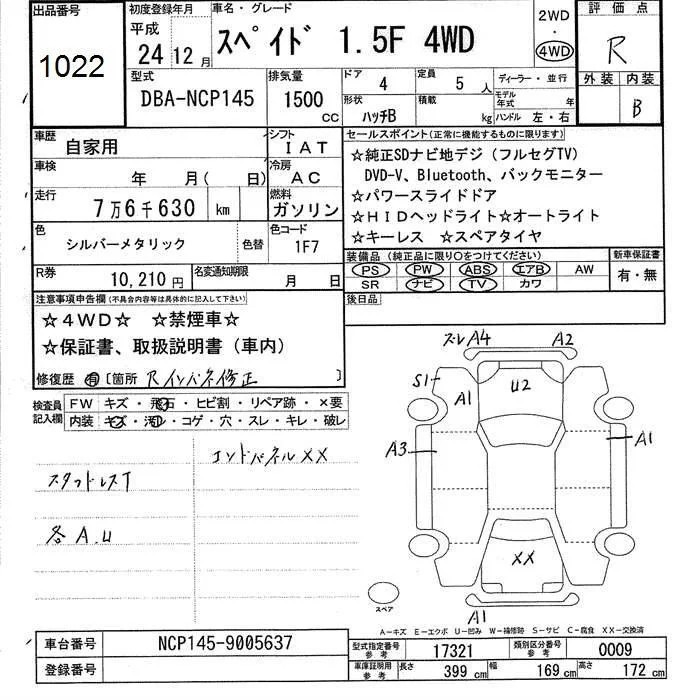 出品番号 初度登録年月 車名・グレード 評価点
1022 平成 24 12月 スペイド 1.5F 4WD 2WD・4WD R
型式 排気量 ドア 4 定員 5人 ディーラー・並行 外装 内装
DBA-NCP145 1500cc 形状 ハッチB 積載 kg モデル年式 年 ハンドル 左・右 B
車歴 自家用 シフト IAT セールスポイント(正常に機能するものに限ります)
車検 年 月( 日) 冷房 AC ☆純正SDナビ地デジ(フルセグTV)
DVD-V、Bluetooth、バックモニター
走行 7万6千630 km 燃料 ガソリン ☆パワースライドドア
☆HIDヘッドライト☆オートライト
色 シルバーメタリック 色替 色コード 1F7 ☆キーレス ☆スペアタイヤ
装備品(純正品に限り○をつけてください) 新車保証書
R券 10,210円 名変通知期限 月 日 PS PW ABS エアB AW 有・無
SR ナビ TV カワ
注意事項申告欄(不具合内容等は具体的に記入して下さい) 後日品
☆4WD☆ ☆禁煙車☆
☆保証書、取扱説明書(車内)
修復歴 有 [箇所 Rインパネ修正 ]
検査員記入欄 FW キズ・飛石・ヒビ割・リペア跡・×要
内装 キズ・汚・コゲ・穴・スレ・キレ・破レ
エンドパネルXX
スタッドレスT
各A.U
ズレA4 A2
S1 A1 U2
A3 A1
XX
スペア
A1
A−キズ E−エクボ U−凹み W−補修跡 S−サビ C−腐食 XX−交換済
車台番号 NCP145-9005637 型式指定番号 参考 17321 類別区分番号 参考 0009
登録番号 車庫証明用 参考 長さ 399cm 幅 169cm 高さ 172cm